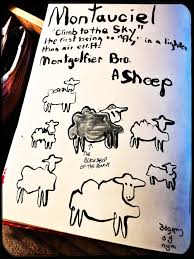 Montauciel
"Climb to the Sky"
the first being to "Fly" in a lighter
than air craft.
Montgolfier Bro.
A Sheep
The
BLACK SHEEP
OF THE FAMILY